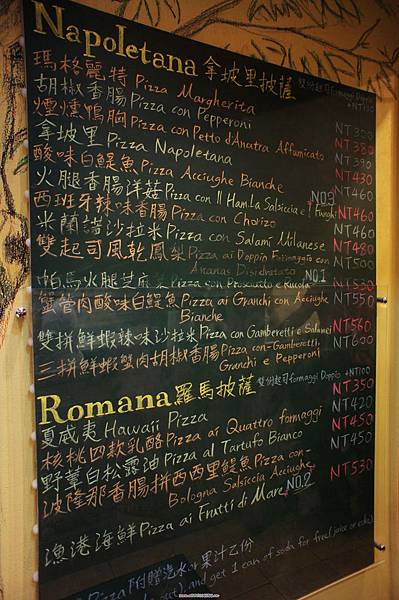 Napoletana 拿坡里披薩 雙份起司formaggi Doppio +NT100
瑪格麗特Pizza Margherita NT300
胡椒香腸Pizza con Pepperoni NT380
煙燻鴨胸Pizza con Petto d'Anatra Affumicato NT390
拿坡里Pizza Napoletana NT430
酸味白鯷魚Pizza Acciughe Bianche NT460
火腿香腸洋菇Pizza con Il Ham.La Salsiccia e I Funghi NO3 NT460
西班牙辣味香腸Pizza con Chorizo NT460
米蘭諾沙拉米Pizza con Salami Milanese NT480
雙起司風乾鳳梨Pizza ai Doppio Formaggio con NT500
Ananas Disidratata NO.1
帕馬火腿芝麻菜Pizza con Prosciutto e Rucola NT530
蟹管肉酸味白鯷魚Pizza ai Granchi con Acciughe NT550
Bianche
雙拼鮮蝦辣味沙拉米Pizza con Gamberetti e Salamei NT560
三拼鮮蝦蟹肉胡椒香腸Pizza con-Gamberetti, NT600
Granchi e Pepperoni
Romana羅馬披薩 雙份起司formaggi Doppio +NT100
夏威夷Hawaii Pizza NT350
核桃四款乳酪Pizza ai Quattro formaggi NT420
野蕈白松露油Pizza al Tartufo Bianco NT450
波隆那香腸拼西西里鯷魚Pizza con- NT450
Bologna Salsiccia Acciughe
漁港海鮮Pizza ai Frutti di Mare NO.2 NT530
Pizza 附贈汽水or果汁乙份
and get 1 can of soda for free(juice or coke)